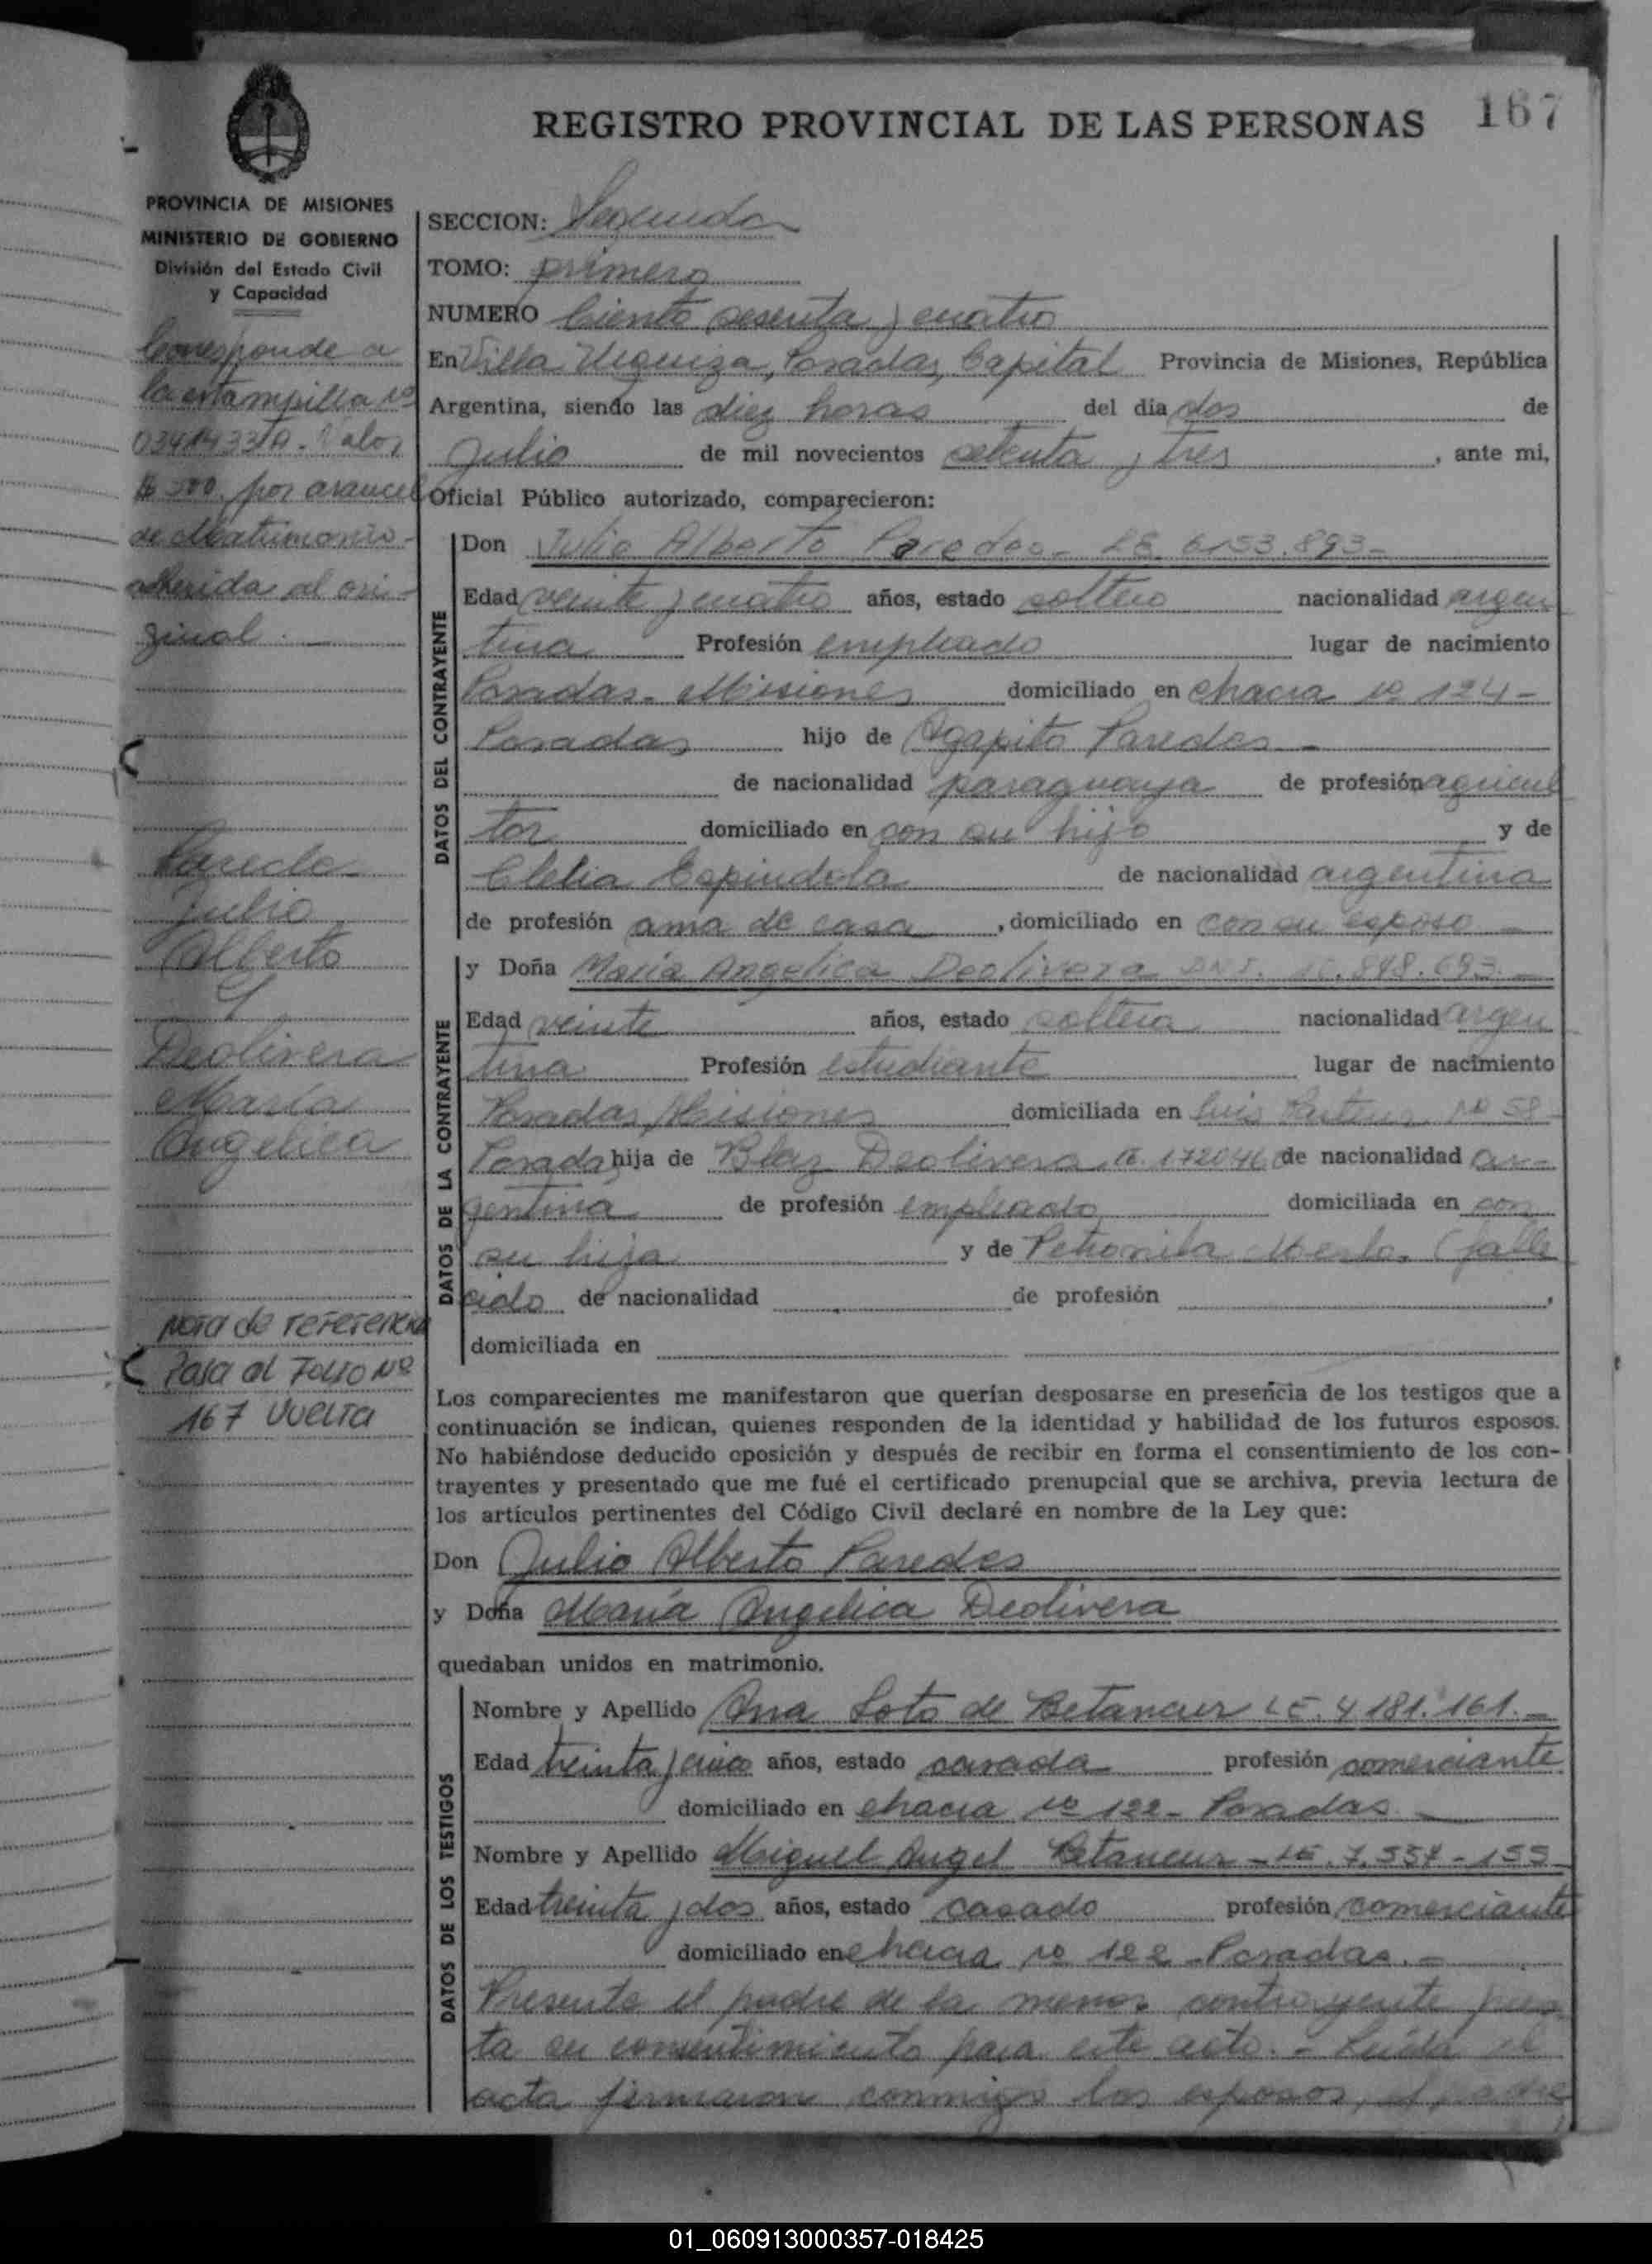 167
REGISTRO PROVINCIAL DE LAS PERSONAS
PROVINCIA DE MISIONES
MINISTERIO DE GOBIERNO
División del Estado Civil
y Capacidad
Corresponde a
la estampilla nº
Valor
por arancel
de Matrimonio-
adherida al ori-
ginal.
Paredes
Julio
Alberto
y
Deolivera
María
Angelica
Nota de referencia
Pasa al Folio Nº
167 vuelta
SECCION: Segunda
TOMO: primero
NUMERO Ciento sesenta y cuatro
En Villa Urquiza, Posadas, Capital Provincia de Misiones, República
Argentina, siendo las diez horas del día dos de
Julio de mil novecientos setenta y tres, ante mi,
Oficial Público autorizado, comparecieron:
DATOS DEL CONTRAYENTE
Don Julio Alberto Paredes- LE 6153.893-
Edad veinte y cuatro años, estado soltero nacionalidad argen
tina Profesión empleado lugar de nacimiento
Posadas- Misiones domiciliado en chacra nº 124-
Posadas hijo de Agapito Paredes -
de nacionalidad paraguaya de profesión agricul
tor domiciliado en con su hijo y de
Clelia Espindola de nacionalidad argentina
de profesión ama de casa, domiciliado en con su esposo -
DATOS DE LA CONTRAYENTE
y Doña María Angelica Deolivera DNI. 10.848.693.-
Edad veinte años, estado soltera nacionalidad argen
tina Profesión estudiante lugar de nacimiento
Posadas, Misiones domiciliada en Luis Pasteur Nº 58-
Posadas hija de Blaz Deolivera de nacionalidad ar-
gentina de profesión empleado domiciliada en con
su hija y de Petronila Merlo. (falle
cido de nacionalidad de profesión ,
domiciliada en
Los comparecientes me manifestaron que querían desposarse en presencia de los testigos que a
continuación se indican, quienes responden de la identidad y habilidad de los futuros esposos.
No habiéndose deducido oposición y después de recibir en forma el consentimiento de los con-
trayentes y presentado que me fué el certificado prenupcial que se archiva, previa lectura de
los artículos pertinentes del Código Civil declaré en nombre de la Ley que:
Don Julio Alberto Paredes
y Doña María Angelica Deolivera
quedaban unidos en matrimonio.
DATOS DE LOS TESTIGOS
Nombre y Apellido Ana Soto de Betancur LE. 4.181.161.-
Edad treinta y cinco años, estado casada profesión comerciante
domiciliado en chacra nº 122- Posadas. -
Nombre y Apellido Miguel Angel Betancur - LE. 7.554-155
Edad treinta y dos años, estado casado profesión comerciante
domiciliado en chacra nº 122 - Posadas. -
Presente el padre de la menor contrayente pres
ta su consentimiento para este acto. - Leída el
acta firmaron conmigo los esposos, el padre
01_060913000357-018425